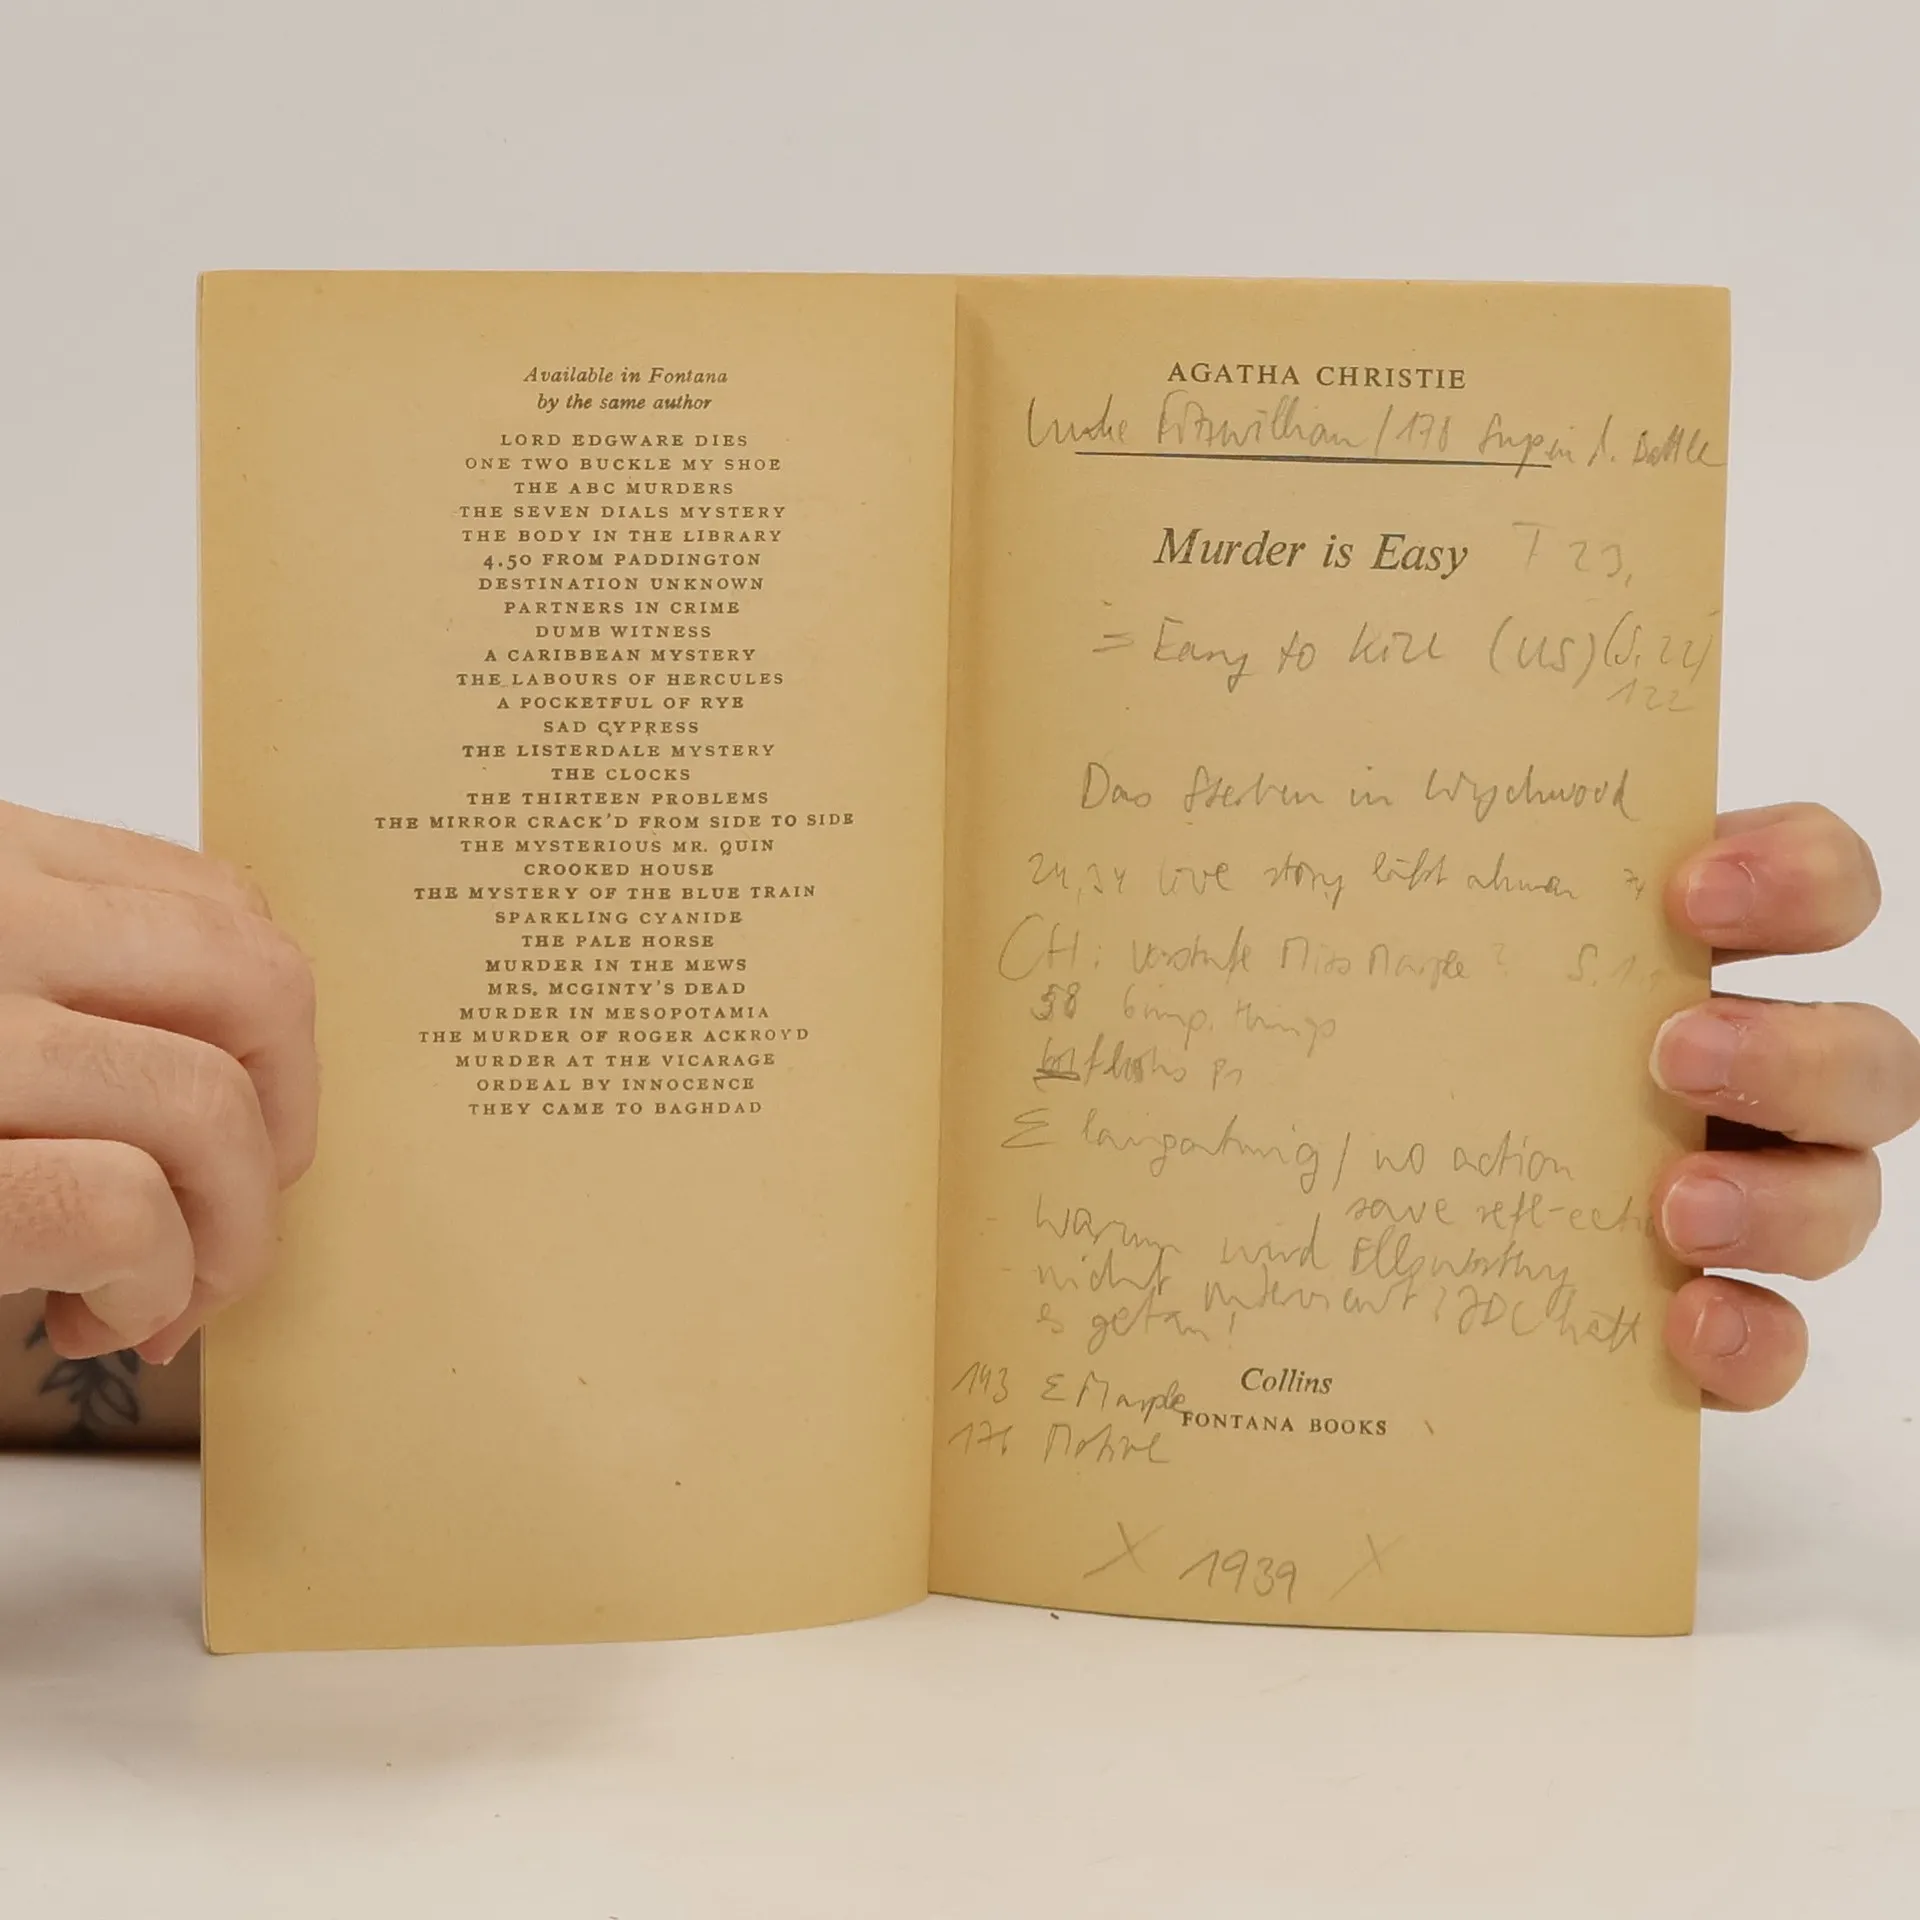 Available in Fontana
by the same author
LORD EDGWARE DIES
ONE TWO BUCKLE MY SHOE
THE ABC MURDERS
THE SEVEN DIALS MYSTERY
THE BODY IN THE LIBRARY
4.50 FROM PADDINGTON
DESTINATION UNKNOWN
PARTNERS IN CRIME
DUMB WITNESS
A CARIBBEAN MYSTERY
THE LABOURS OF HERCULES
A POCKETFUL OF RYE
SAD CYPRESS
THE LISTERDALE MYSTERY
THE CLOCKS
THE THIRTEEN PROBLEMS
THE MIRROR CRACK'D FROM SIDE TO SIDE
THE MYSTERIOUS MR. QUIN
CROOKED HOUSE
THE MYSTERY OF THE BLUE TRAIN
SPARKLING CYANIDE
THE PALE HORSE
MURDER IN THE MEWS
MRS. MCGINTY'S DEAD
MURDER IN MESOPOTAMIA
THE MURDER OF ROGER ACKROYD
MURDER AT THE VICARAGE
ORDEAL BY INNOCENCE
THEY CAME TO BAGHDAD
AGATHA CHRISTIE
Luke Fitzwilliam / 178 Battle
Murder is Easy T 23,
= Easy to kill (US) (S. 22)
122
Das Sterben in Wychwood
24, 34 love story läßt ahnen 74
Vorstufe Miss Marple?
58 6 imp. things
Σ langatmig / no action
save reflection
- warum wird Ellsworthy
- nicht interviewt? JDC hätt
es getan!
143 Σ Marple
Collins
FONTANA BOOKS
176 Motive
X 1939 X